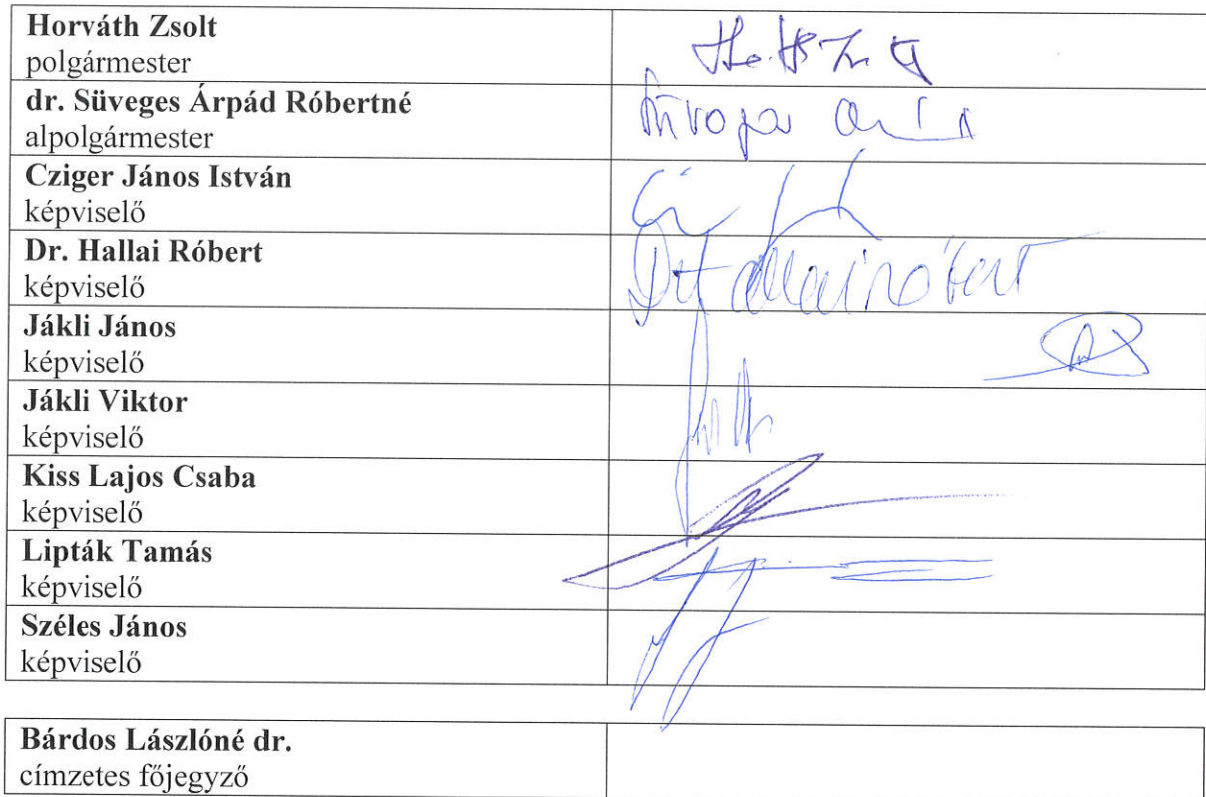 Horváth Zsolt
polgármester
dr. Süveges Árpád Róbertné
alpolgármester
Cziger János István
képviselő
Dr. Hallai Róbert
képviselő
Dr Hallai Róbert
Jákli János
képviselő
Jákli Viktor
képviselő
Kiss Lajos Csaba
képviselő
Lipták Tamás
képviselő
Széles János
képviselő
Bárdos Lászlóné dr.
címzetes főjegyző